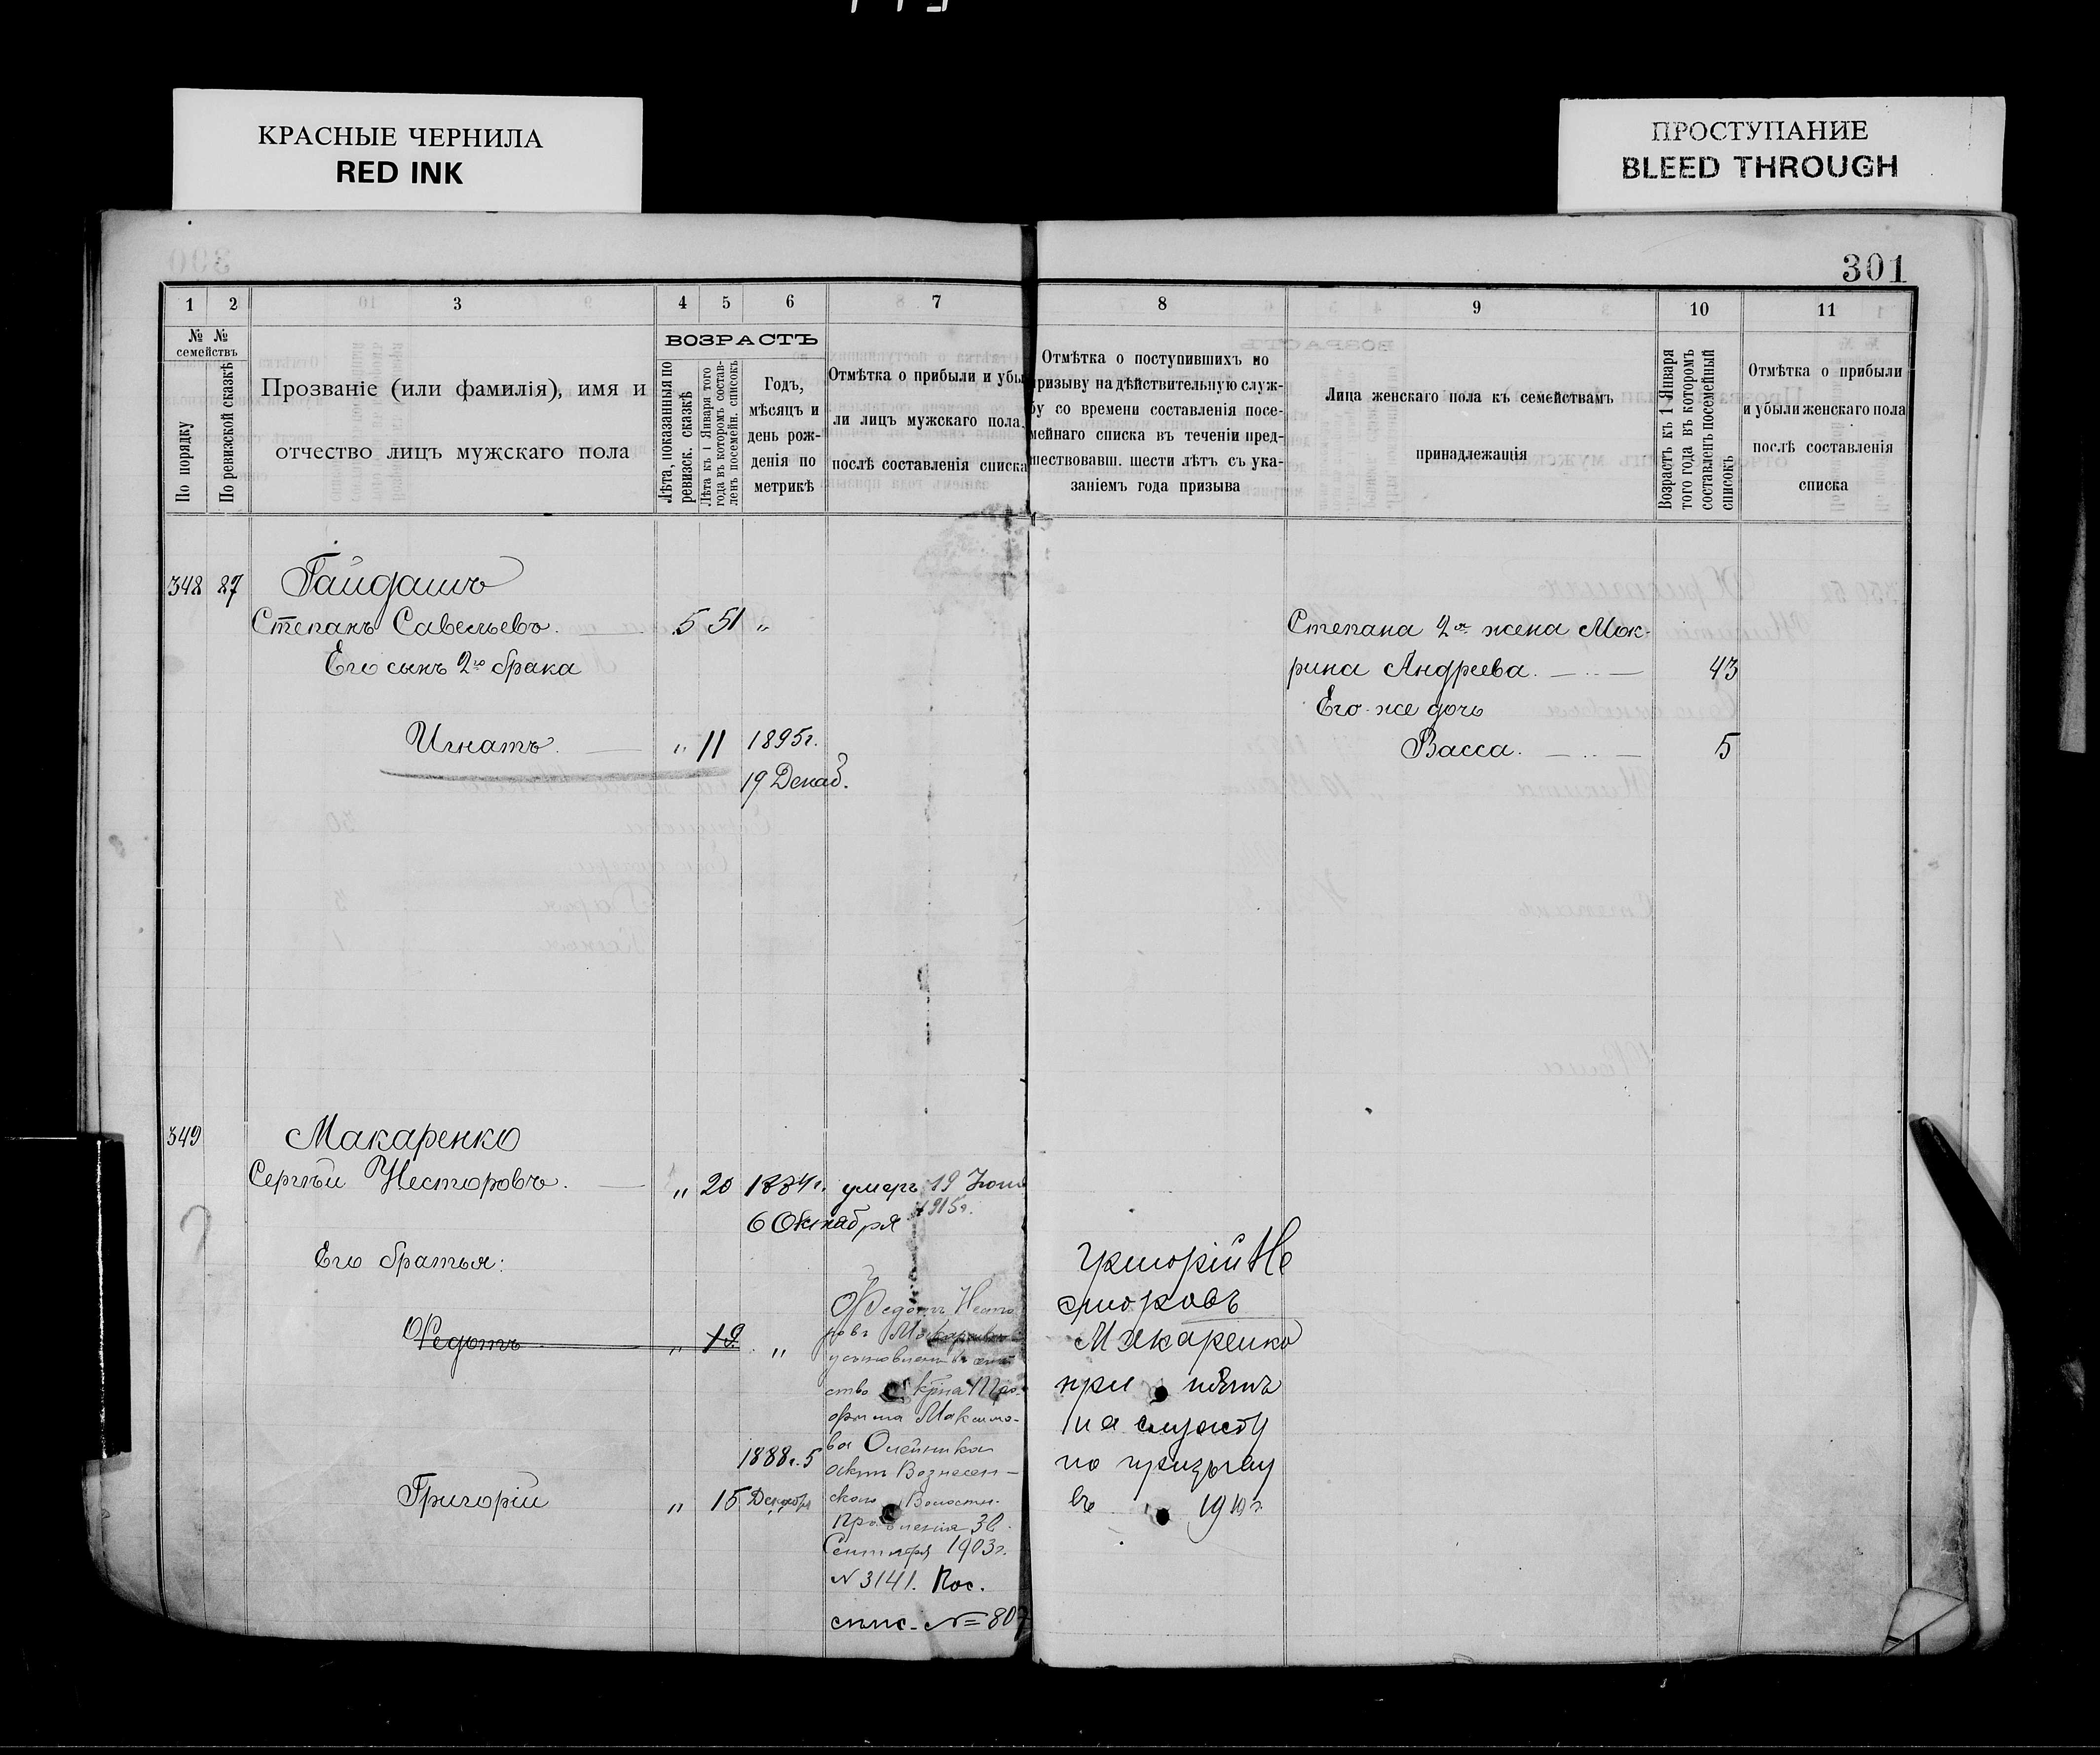 КРАСНЫЕ ЧЕРНИЛА
RED INK
ПРОСТУПАНИЕ
BLEED THROUGH
301
1 2 3 4 5 6 7
№ № семействъ
По порядку
По ревизской сказкѣ
Прозваніе (или фамилія), имя и
отчество лицъ мужскаго пола
ВОЗРАСТЪ
Лѣта, показанныя по
ревизск. сказкѣ
Лѣта къ 1 Января того
года въ которомъ состав-
ленъ посемейн. списокъ
Годъ,
мѣсяцъ и
день рож-
денія по
метрикѣ
Отмѣтка о прибыли и убы
ли лицъ мужскаго пола
послѣ составленія списка
8 9 10 11
Отмѣтка о поступившихъ по
призыву на дѣйствительную служ-
бу со времени составленія посе-
мейнаго списка въ теченіи пред-
шествовавш. шести лѣтъ съ ука-
заніемъ года призыва
Лица женскаго пола къ семействамъ
принадлежащія
Возрастъ къ 1 Января
того года въ которомъ
составленъ посемейный
списокъ
Отмѣтка о прибыли
и убыли женскаго пола
послѣ составленія
списка
348 87 Гайдашъ
Степанъ Савельевъ. 5 51 „
Его сынъ 2го брака
Игнатъ. „ 11 1895г.
19 Декаб.
Степана 2я жена Мок-
рина Андреева. 43
Его же дочь
Васса. 5
349 Макаренко
Сергѣй Несторовъ. „ 20 1884г. умеръ 19 Іюня
6 Октября 1915г.
Его братья:
Ѳедотъ „ 19 „
Григорій „ 15 1888г. 5 Декабря
Ѳедотъ Несто
ровъ
Макси-
ва Олейника
Вознесен-
скаго Волостн.
Правленія 30
Сентября 1903г.
N 3141. Пос.
спис. № 807
Григорій Не
сторовъ
Макаренко
принятъ
на службу
по призыву
въ 1910г.